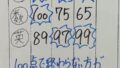 数 100 75 65
英 89 97 99
100点で終わらない方が